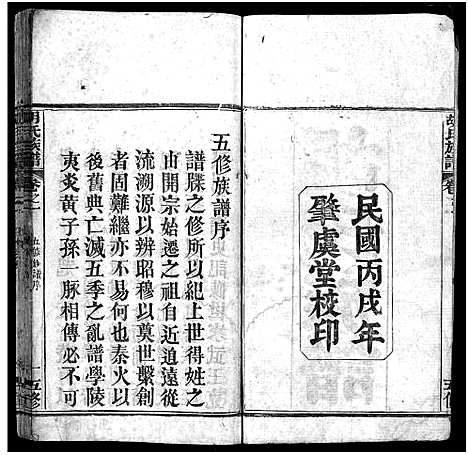 胡氏族譜
卷之一
五修
民國丙戌年
肇虞堂校印
五修族譜序
譜牒之修所以紀上世得姓之
由開宗始遷之祖自近追遠從
流溯源以辨昭穆以奠世繫創
者固難繼亦不易何也秦火以
後舊典亡滅五季之亂譜學陵
夷炎黃子孫一脈相傳必不可
胡氏族譜
卷之一
五修族譜序
一
五修